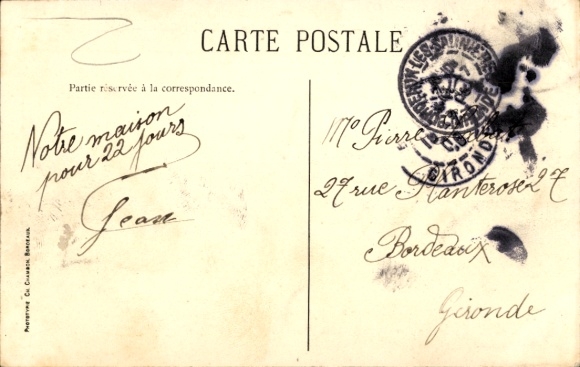 CARTE POSTALE
Partie réservée à la correspondance.
Notre maison
pour 22 jours
Jean
Mr Pierre
27 rue Planterose 27
Bordeaux
Gironde
GIRONDE
PHOTOTYPIE CH. CHAMBON, BORDEAUX.